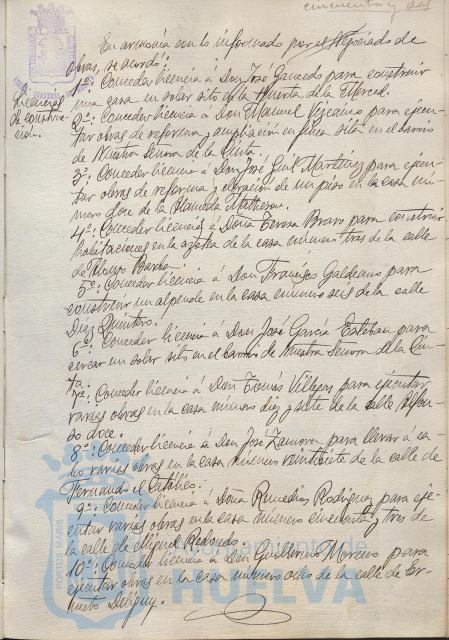 cincuenta y dos
En armonía con lo informado por el Negociado de
obras, se acordó:
Licencias
de construc-
ción.
1º: Conceder licencia á Don José Gamedo para construir
una casa en solar sito en la Huerta de la Merced.
2º: Conceder licencia á Don Manuel Vizcaino para ejecu-
tar obras de reforma y ampliación en finca sita en el barrio
de Nuestra Señora de la Cinta.
3º: Conceder licencia á Don José Gint Martínez para ejecu-
tar obras de reforma y elevación de un piso en la casa nú-
mero doce de la Alameda Matheson.
4º: Conceder licencia á Doña Teresa Bravo para construir
habitaciones en la azotea de la casa número tres de la calle
de Alonso Barba.
5º: Conceder licencia á Don Francisco Galdeano para
construir un alpende en la casa número seis de la calle
Díaz Quintero.
6º: Conceder licencia á Don José García Esteban para
cercar un solar sito en el barrio de Nuestra Señora de la Cin-
ta.
7º: Conceder licencia á Don Tomás Villegas para ejecutar
varias obras en la casa número diez y siete de la calle Alfon-
so doce.
8º: Conceder licencia á Don José Zamora para llevar á ca-
bo varias obras en la casa número veintisiete de la calle de
Fernando el Católico.
9º: Conceder licencia á Doña Remedios Rodríguez para eje-
cutar varias obras en la casa número cincuenta y tres de
la calle de Miguel Redondo.
10º: Conceder licencia á Don Guillermo Moreno para
ejecutar obras en la casa número ocho de la calle de Er-
nesto Deligny.
Ayuntamiento de
HUELVA